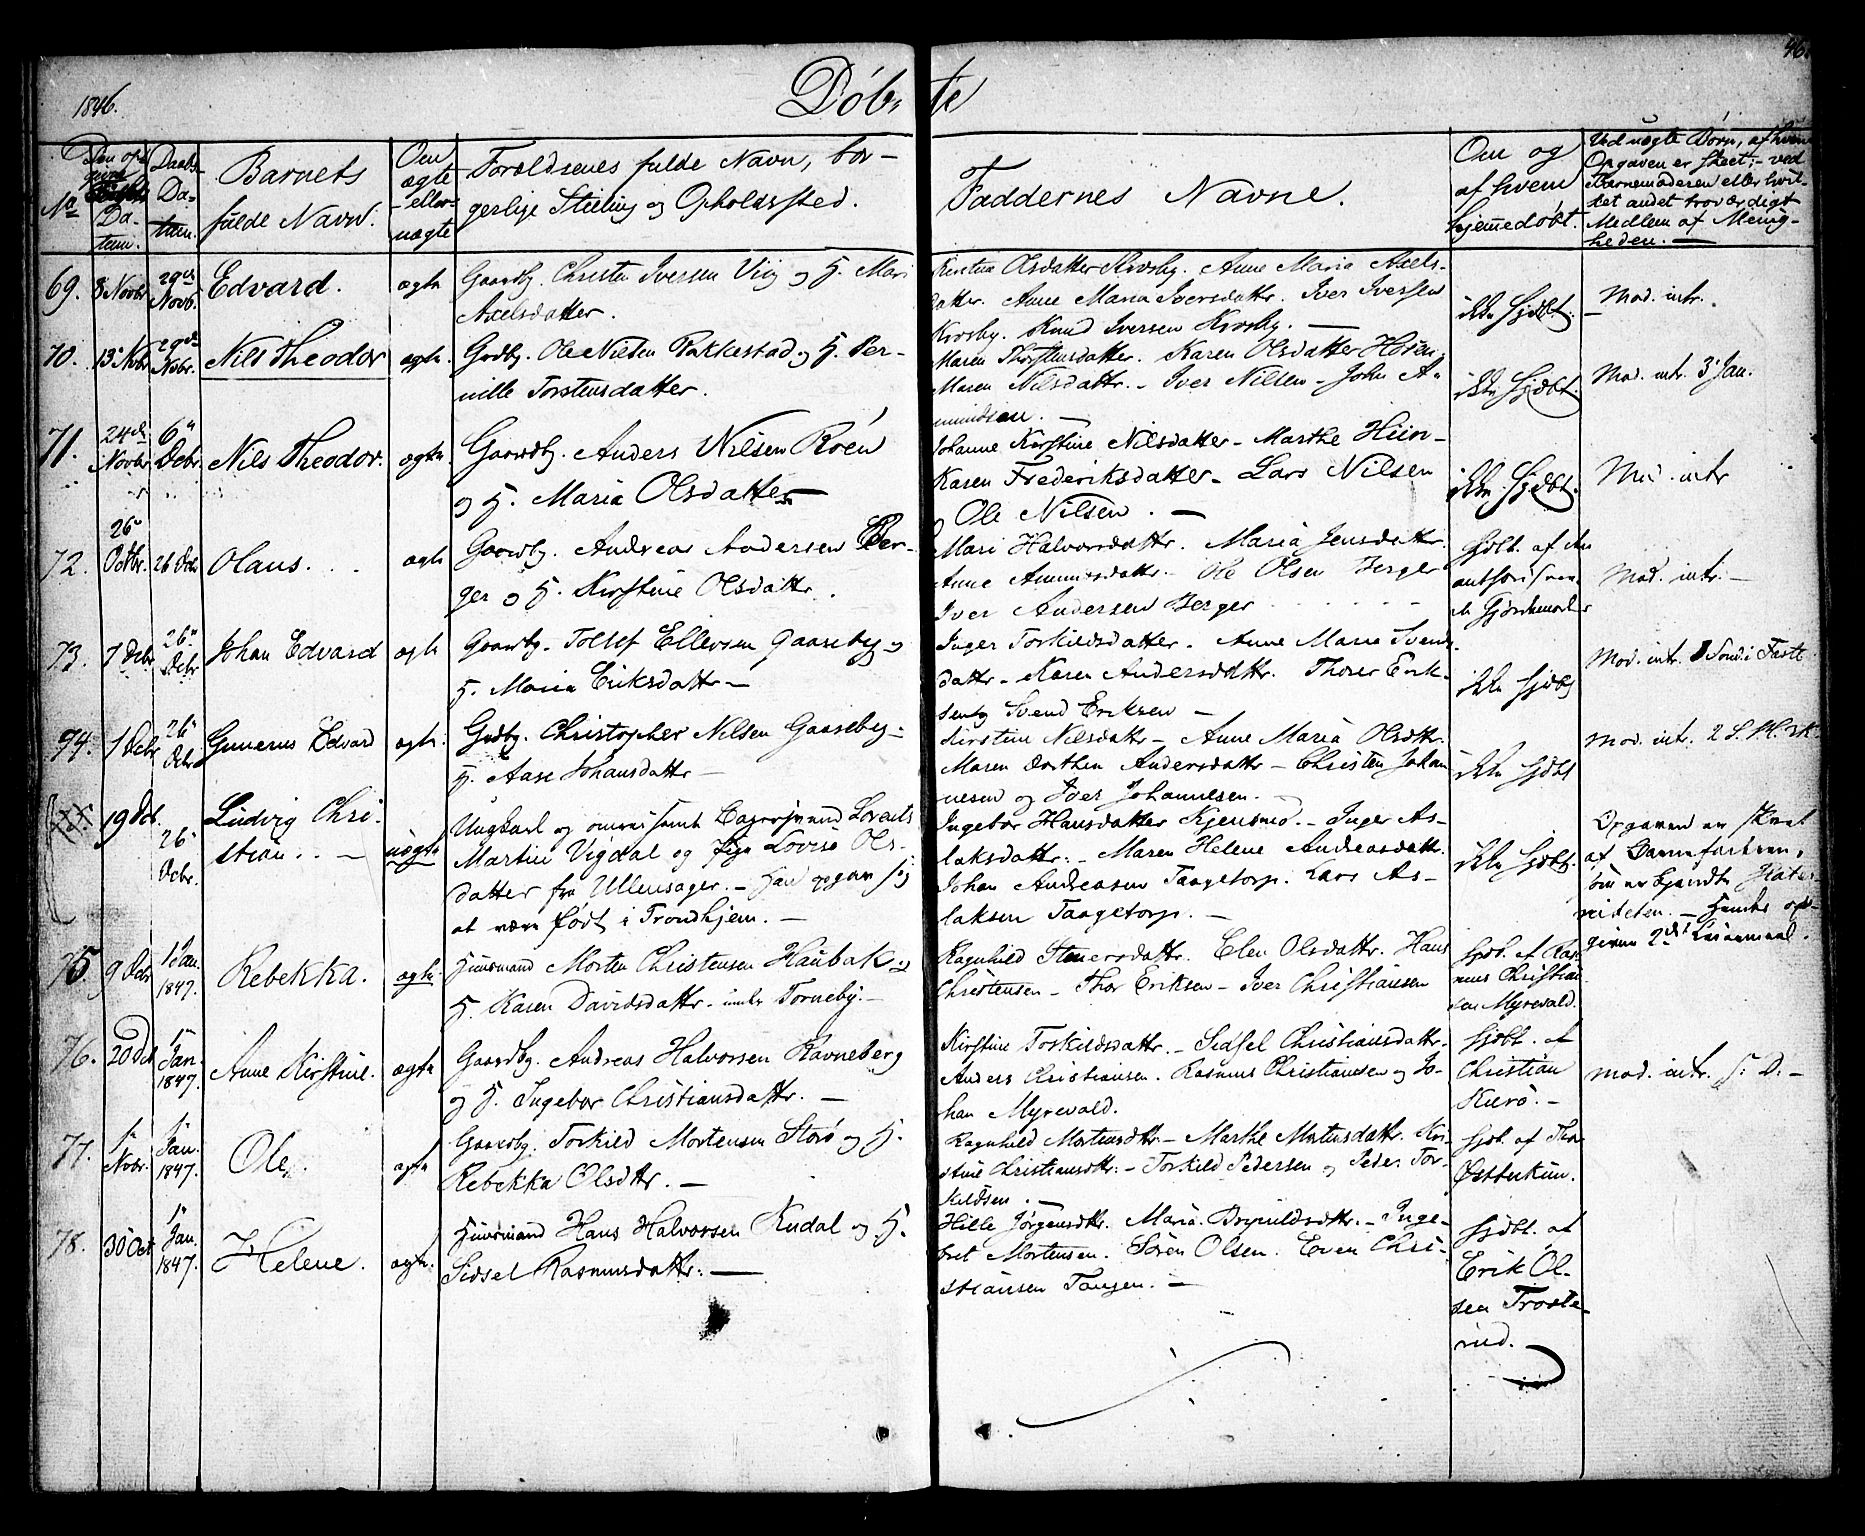 1846.
Döbte
46.
No
Den op-
givne
Da-
tum.
Daabs-
Da-
tum.
Barnets
fulde Navn.
Om
ægte
eller
uægte
Forældrenes fulde Navn, bor-
gerlige Stilling og Opholdssted.
Faddernes Navne.
Om og
af hvem
hjemmedöbt.
Ved uægte Börn, af hvem
Opgaven er skeet; - ved
Barnemoderen eller hvil-
ket andet troværdigt
Medlem af Menig-
heden. —
69. 8 Novbr 29de Novb. Edvard. ægte
Gaardbr. Christen Iversen Viig og H. Mari
Axelsdatter.
Olsdatter Krosby. Anne Maria Axels-
datter. Anne Maria Iversdatter. Iver Iversen
Krosby. Knud Iversen Krosby. —
ikke Hjdbt.
Mod. intr.
70. 13 Nbr 29de Nobr. Nils Theodor ægte.
Grdbr. Ole Nilsen Rakkestad og H. Per-
nille Torstensdatter.
Maren Thorstensdatter. Karen Olsdatter
Maren Nilsdattr. - Iver Nilsen - John A-
mundsen. —
ikke Hjdbt.
Mod. intr. 3 Jan.
71. 24de Novbr 6 Decbr. Nils Theodor. ægte
Gaardbr. Anders Nilsen Röen
og H. Maria Olsdatter —
Johanne Kirstine Nilsdatter - Marthe
Karen Frederiksdatter - Lars Nilsen
Ole Nilsen. —
ikke Hjdbt.
Mod. intr
72. 26 Octbr. 26 Dcbr Olaus. ægte
Gaardbr. Andreas Andersen Ber-
ger og H. Kirstine Olsdattr.
Mari Halvorsdattr. Maria Jensdatter.
Anne - Ole Olsen Berger
Iver Andersen Berger
Hjdbt. af
Mod. intr. —
73. 7 Dcbr 26 Dcbr Johan Edvard ægte
Gaardbr. Tollef Ellevsen Gaaseby og
H. Maria Eriksdattr —
Inger Torkildsdatter. Anne Marie Svends-
dattr - Karen Andersdattr. Thorer Erik-
sen og Svend Eriksen —
ikke Hjdbt
Mod. intr. 1 Sönd. i Faste
74. 1 Dcbr 26 Dcbr Gunerus Edvard ægte.
Grdbr. Christopher Nilsen Gaaseby -
H. Aase Johansdattr —
Kirstine Nilsdattr - Anne Maria Olsdttr.
Maren Dorthea Andersdattr - Christen Johan
nesen og Iver Johannesen. —
ikke Hjdbt
Mod. intr. 2 S.
19 Oct. 26 Dcbr. Ludvig Chri-
stian. — uægte
Ungkarl og Lorents
Martin Vigdal og Pige Lovise Ols-
datter fra Ullensager. - Han opgav sig
at være födt i Trondhjem. —
Ingebor Hansdatter Kjensmo. - Inger As-
laksdattr. - Maren Helene Andreasdattr.
Johan Andreasen Taagetorp. Lars As-
laksen Taagetorp. —
ikke Hjdbt.
Opgaven er skeet
af Barnefaderen,
75 9 Dcbr 1 Jan. 1847. Rebekka. ægte.
Huusmand Morten Christensen Haubak og
H. Karen Davidsdattr. under Torneby. —
Ragnhild Stenersdattr. Elen Olsdattr. Hans
Christensen - Thor Eriksen - Iver Christiansen
Hjdb. af Ras-
mus Christian
sen Myrevald.
76. 20 Oct 1 Jan. 1847. Anne Kirstine. ægte
Gaardbr. Andreas Halvorsen Ravneberg
og H. Ingebor Christiansdattr. —
Kirstine Torkildsdattr. - Sidsel Christiansdattr.
Anders Christiansen. Rasmus Christiansen og Jo-
han Myrevald.
Hjdbt. af
Christian
Kierö. —
Mod. intr. S. D. —
77. 1 Novbr. 1 Jan. 1847. Ole. ægte
Gaardbr. Torkild Mortensen Storö og H.
Rebekka Olsdttr. —
Ragnhild Mortensdttr. - Marthe Mortensdattr. Kir-
stine Christiansdttr. - Torkild Pedersen og Peder Tor-
kildsen. —
Hjdb. af Tho
78. 30 Oct 1 Jan. 1847. Helene. ægte.
Huusmand Hans Halvorsen Rudal og H.
Sidsel Rasmusdattr. —
Hille Jörgensdttr. Maria Brynildsdttr. - Inge-
bret Mortensen. Sören Olsen. Even Chri-
stiansen Tangen. —
Hjdbt. af
Erik Ol-
sen Troste-
rud. —